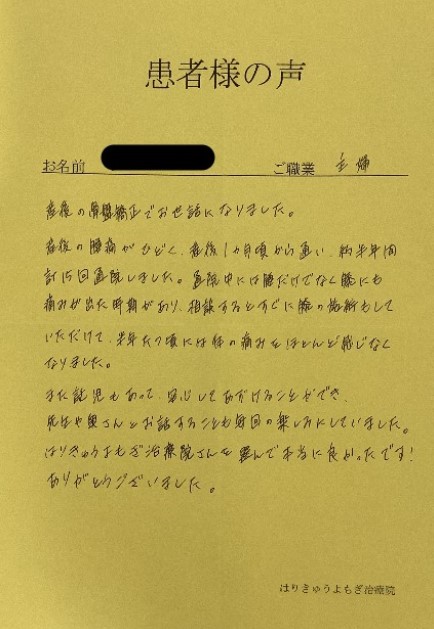 患者様の声
お名前 ご職業 主婦
産後の骨盤矯正でお世話になりました。
産後の腰痛がひどく、産後1か月頃から通い、約半年間
計15回通院しました。通院中には腰だけでなく膝にも
痛みが出た時期があり、相談するとすぐに膝の施術もして
いただけて、半年たつ頃には体の痛みをほとんど感じなく
なりました。
また託児もあって、安心してあずけることができ、
先生や奥さんとお話することも毎回の楽しみにしていました。
はりきゅうよもぎ治療院さんを選んで本当に良かったです!
ありがとうございました。
はりきゅうよもぎ治療院